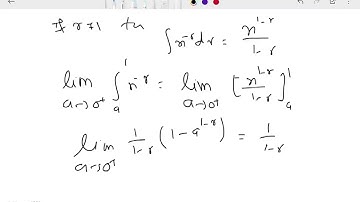 If r≠1 then ∫x^{-r}dr = x^{1-r}/1-r
lim a→0⁺ ∫_a^1 x^{-r} = lim a→0⁺ [x^{1-r}/1-r]_a^1
lim a→0⁺ 1/1-r (1-a^{1-r}) = 1/1-r